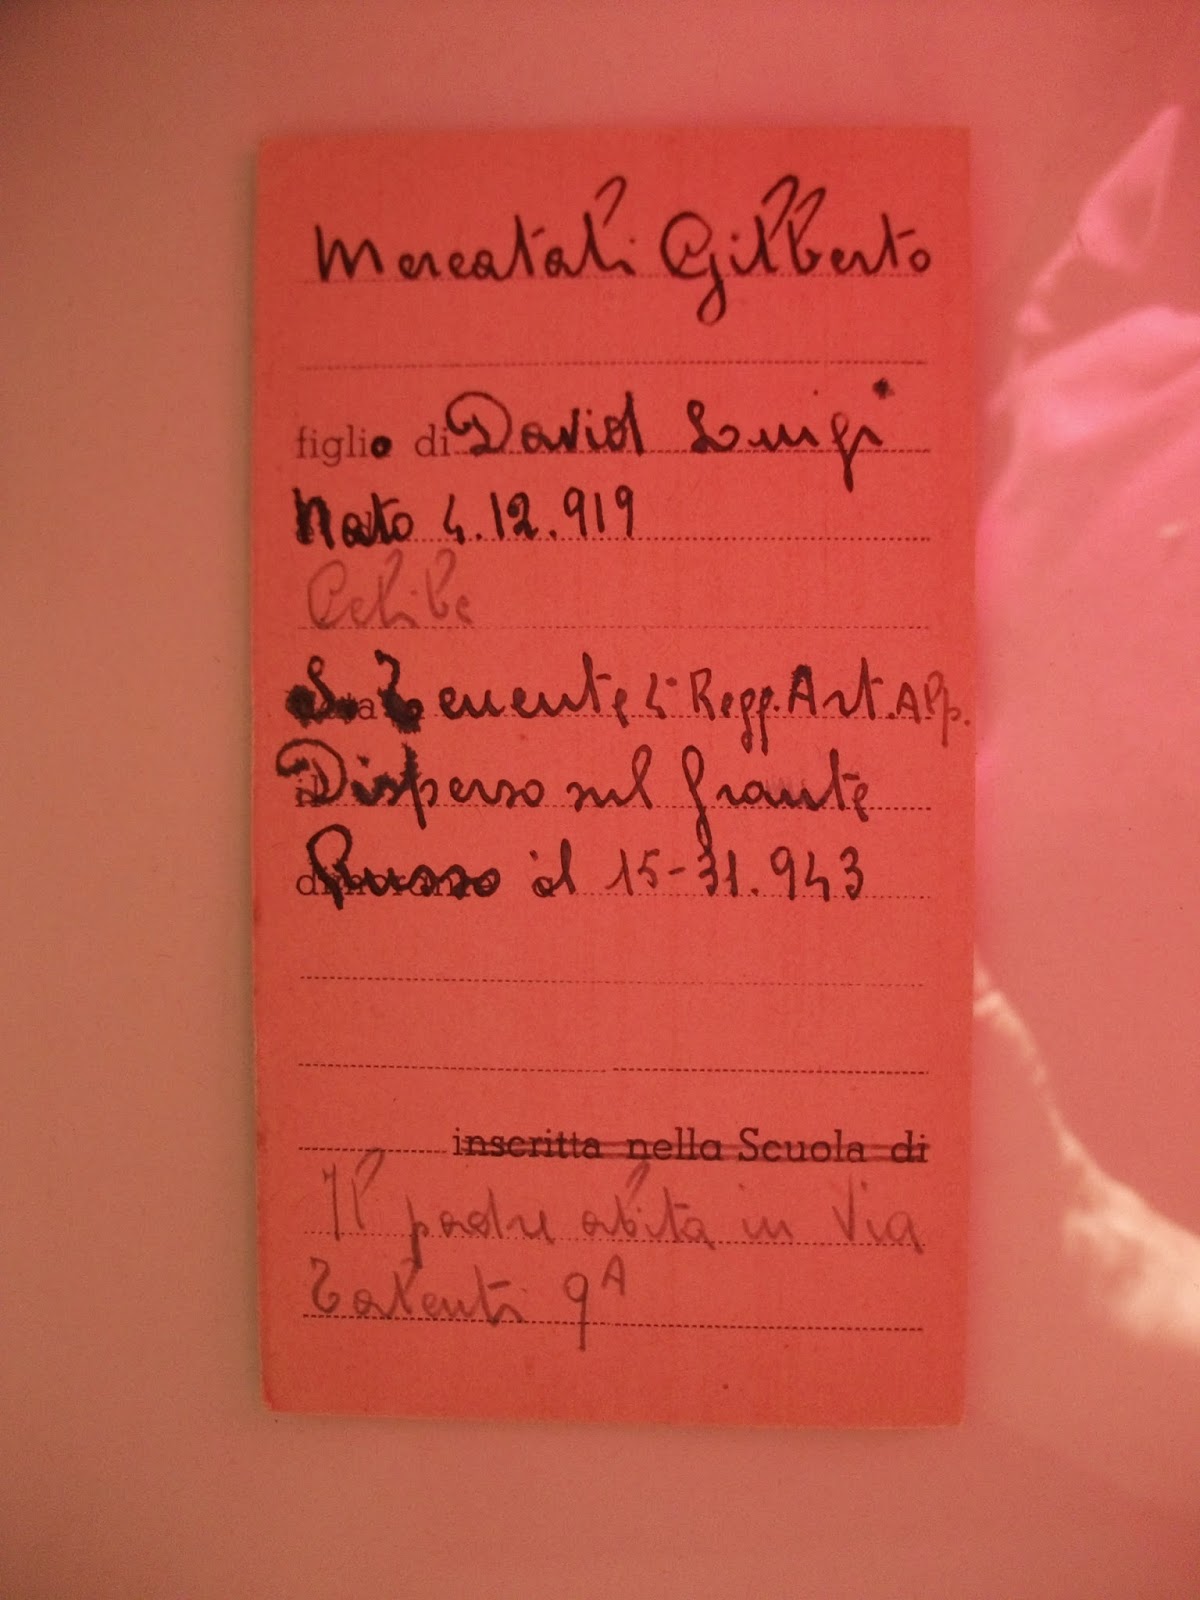 Mercatali Gilberto
figlio di David Luigi
Nato 4.12.919
Celibe
S. Tenente 4° Regg. Art. Alp.
Disperso sul fronte
Russo il 15-31.943
inscritta nella Scuola di
Il padre abita in Via
Talenti 9A